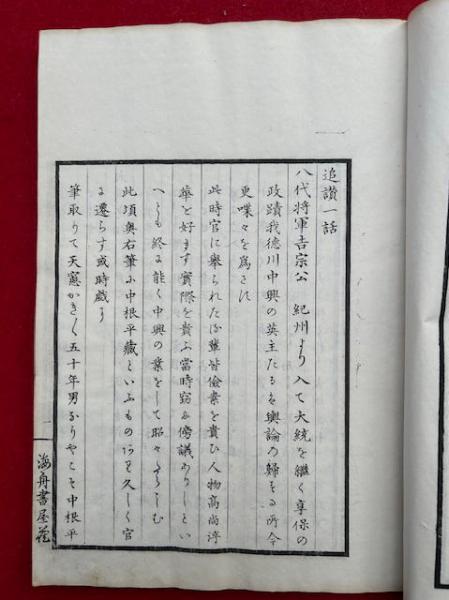 追讃一話
八代将軍吉宗公　紀州より入て大統を継く享保の
政蹟我徳川中興の英主たるは輿論の歸する所今
更喋々を為さす
此時官に擧られたる輩皆儉素を貴ひ人物高尚浮
華を好ます實際を貴ふ當時窃に傍議ありしとい
へとも終に能く中興の業をして昭々たらしむ
此頃奥右筆に中根平蔵といふものあり久しく官
に遷らす或時戯に
筆取りて天窓かき〱五十年男なりやこそ中根平
一
海舟書屋蔵